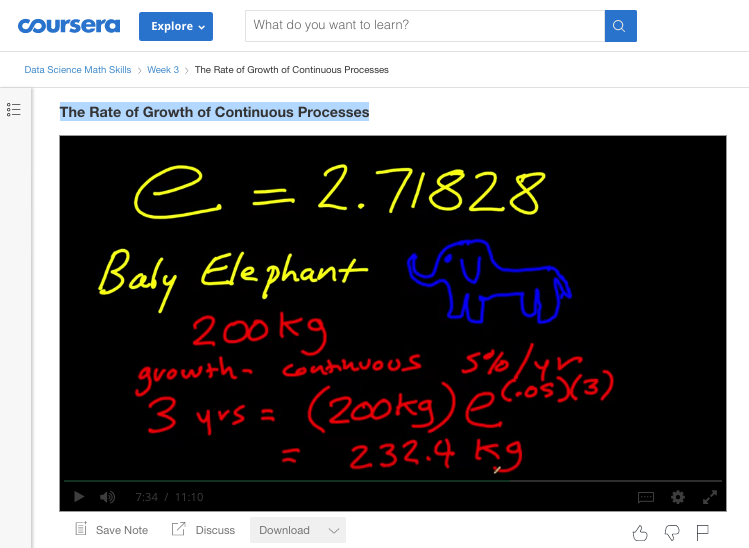 coursera Explore What do you want to learn?
Data Science Math Skills > Week 3 > The Rate of Growth of Continuous Processes
The Rate of Growth of Continuous Processes
e = 2.71828
Baby Elephant
200kg
growth - continuous 5%/yr
3 yrs = (200kg) e^(.05)(3)
= 232.4 kg
7:34 / 11:10
Save Note Discuss Download